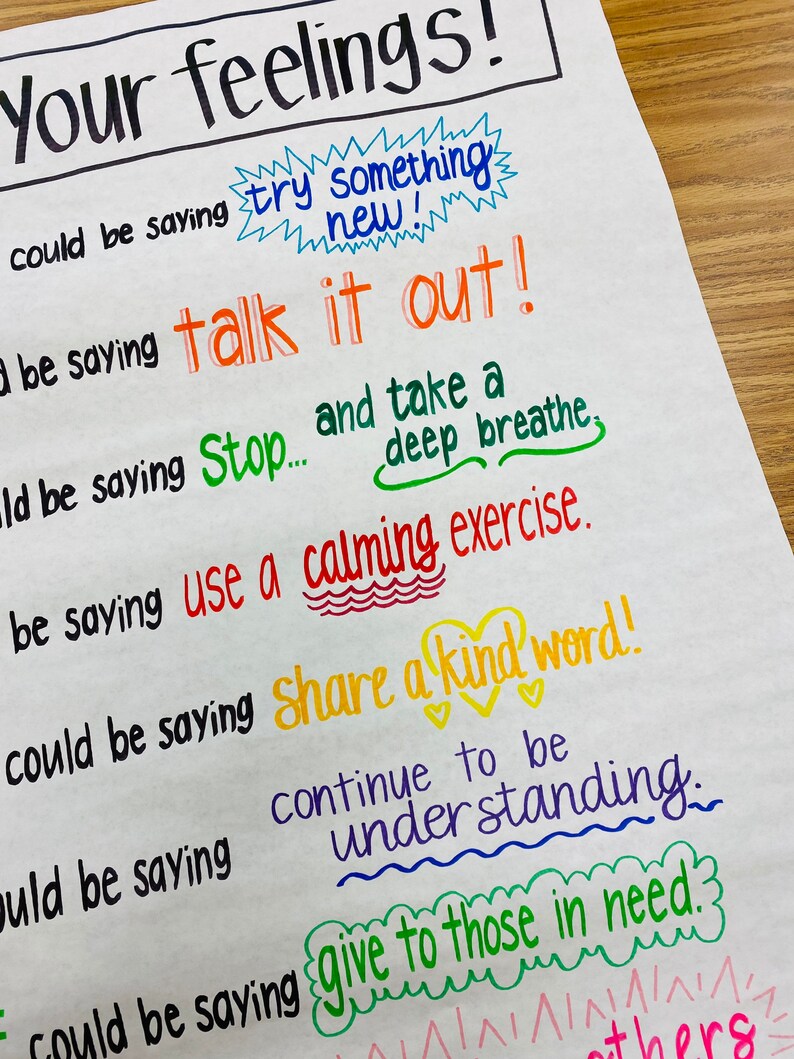 Your feelings!
could be saying try something
new!
be saying talk it out!
be saying Stop... and take a
deep breathe.
be saying use a calming exercise.
could be saying share a kind word!
continue to be
could be saying understanding.
could be saying give to those in need.
others